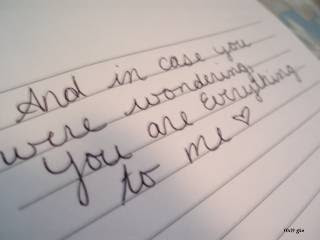 And in case you
were wondering,
you are Everything
to me ♡